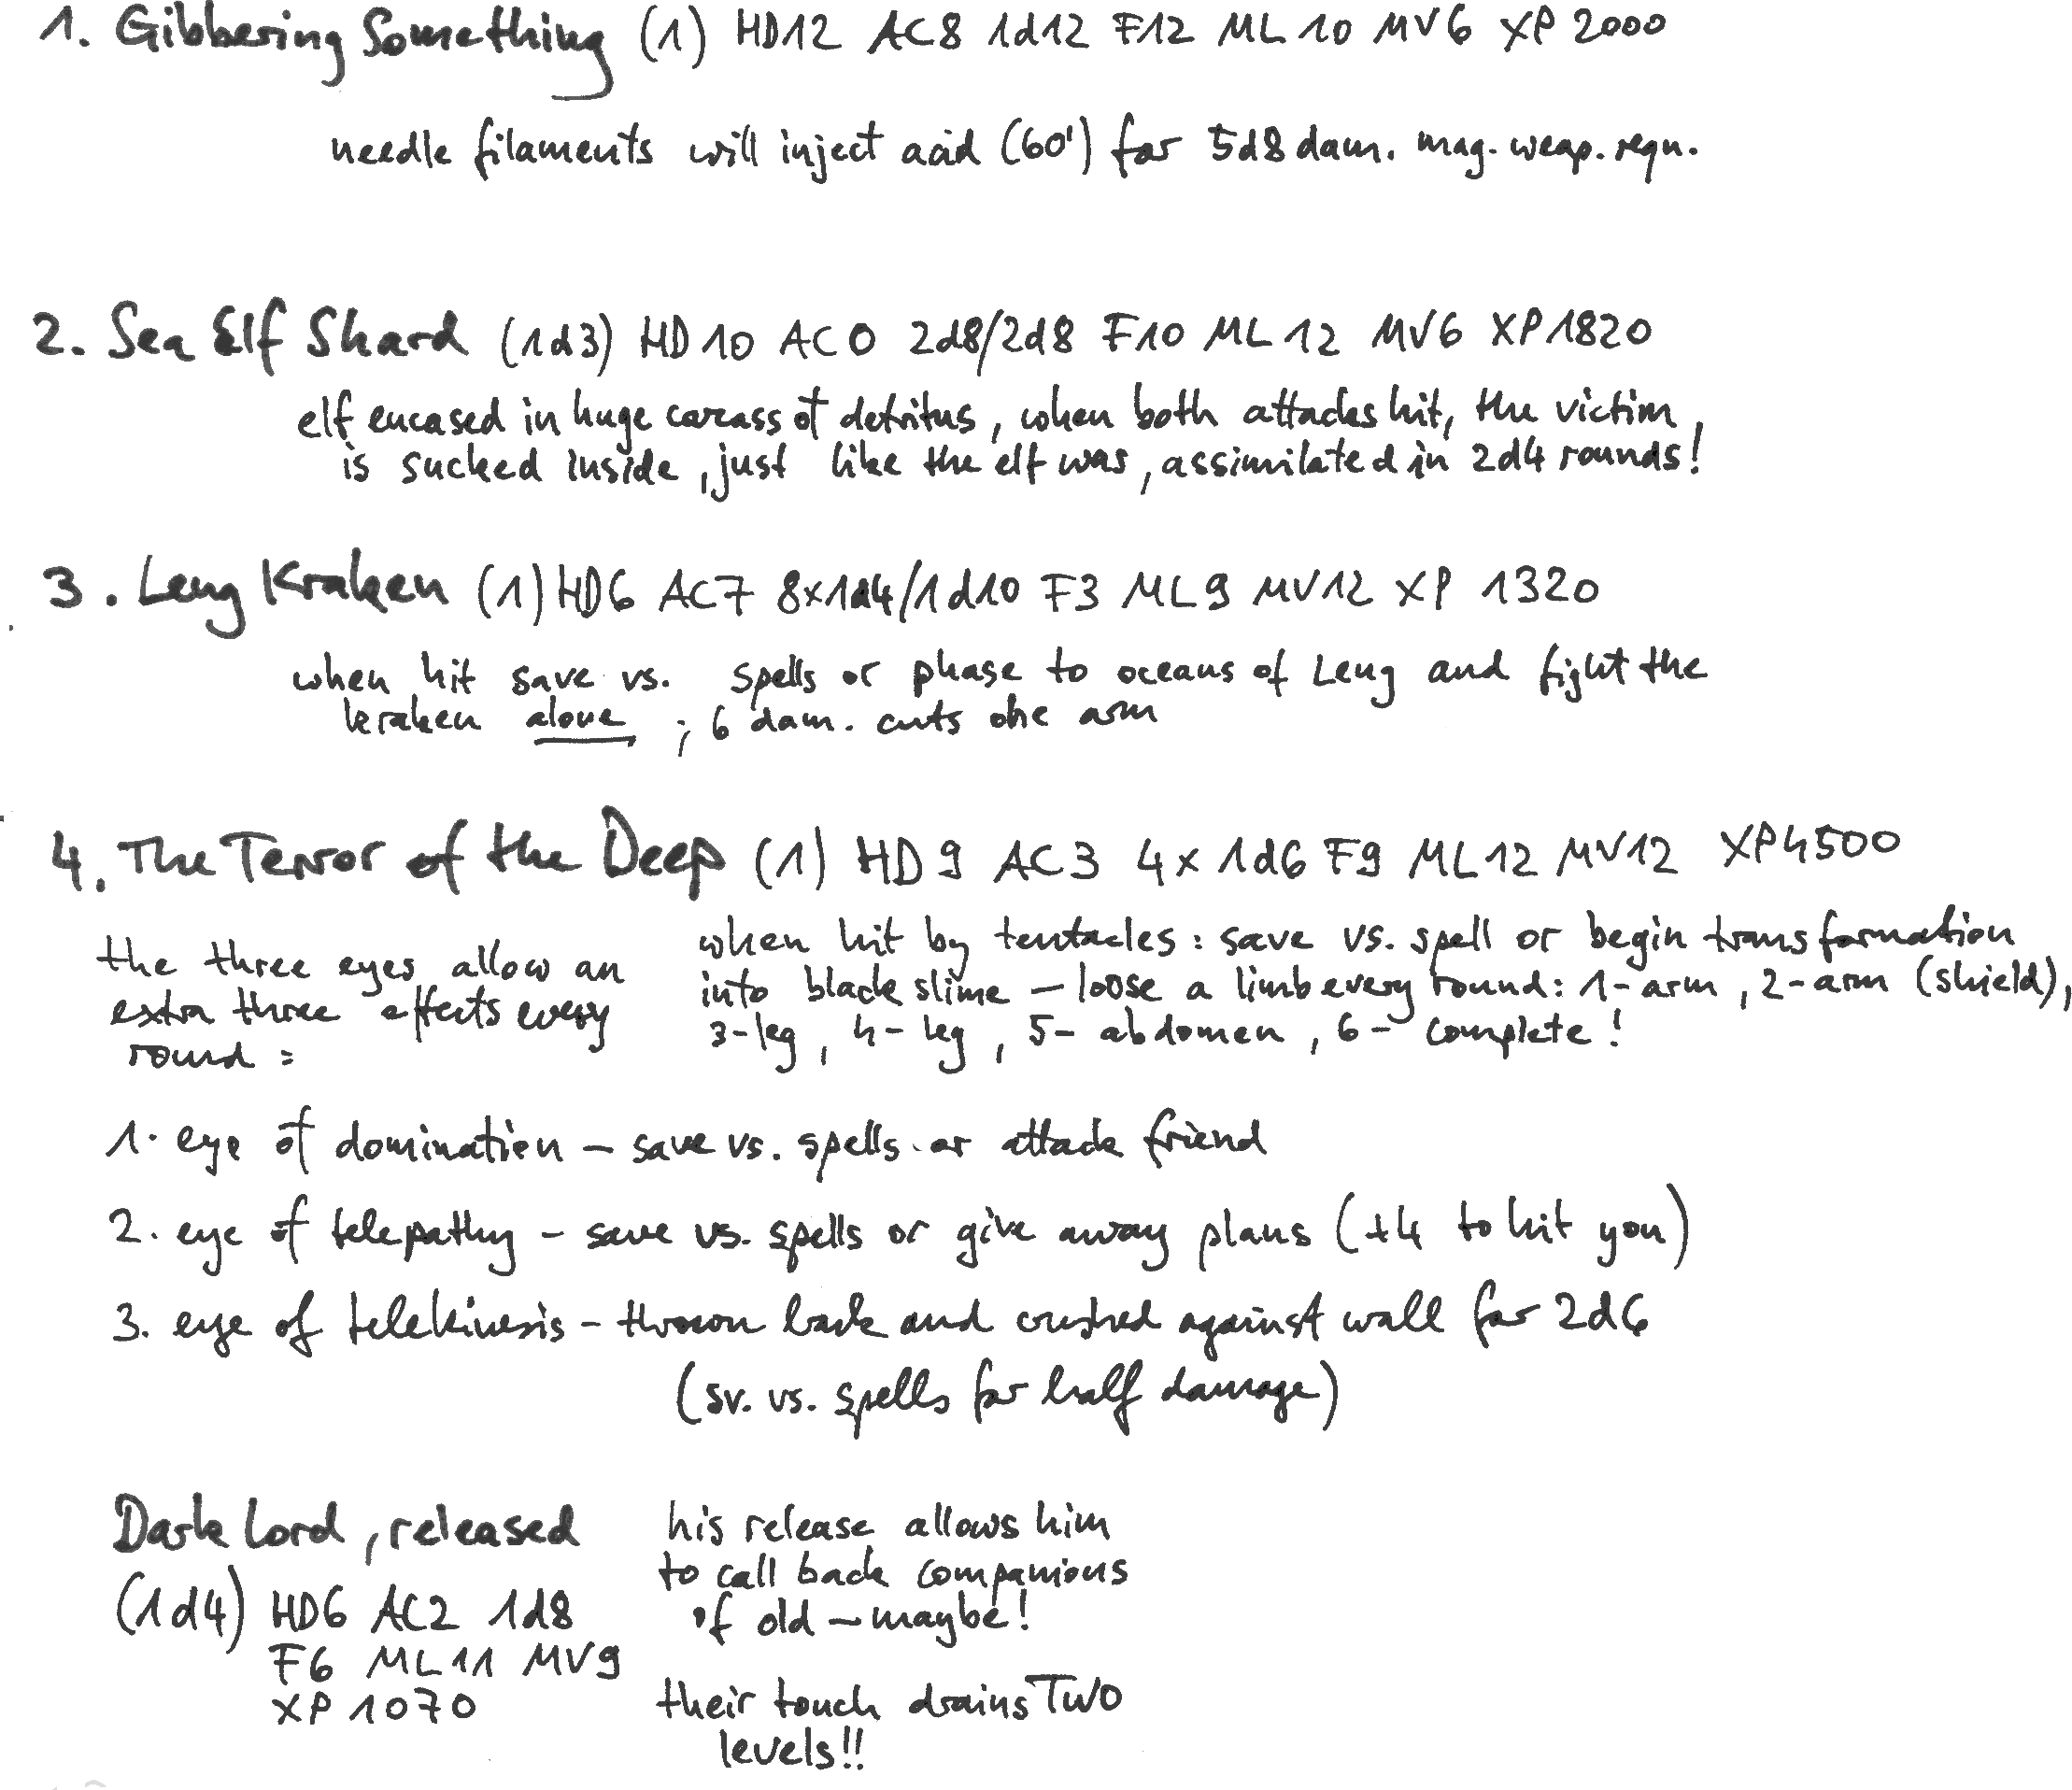 1. Gibbering Something (1) HD12 AC8 1d12 F12 ML 10 MV6 XP 2000
needle filaments will inject acid (60') for 5d8 dam. mag. weap. requ.
2. Sea Elf Shard (1d3) HD 10 AC 0 2d8/2d8 F10 ML 12 MV6 XP 1820
elf encased in huge carcass of detritus, when both attacks hit, the victim
is sucked inside, just like the elf was, assimilated in 2d4 rounds!
3. Leng Kraken (1) HD6 AC7 8x1d4/1d10 F3 ML9 MV12 XP 1320
when hit save vs. spells or phase to oceans of Leng and fight the
kraken alone ; 6 dam. cuts one arm
4. The Terror of the Deep (1) HD 9 AC3 4x 1d6 F9 ML12 MV12 XP4500
the three eyes allow an
extra three effects every
round :
when hit by tentacles: save vs. spell or begin transformation
into black slime – loose a limb every round: 1-arm, 2-arm (shield),
3-leg, 4-leg, 5- abdomen, 6- complete!
1. eye of domination – save vs. spells or attack friend
2. eye of telepathy – save vs. spells or give away plans (+4 to hit you)
3. eye of telekinesis – thrown back and crushed against wall for 2d6
(sv. vs. spells for half damage)
Dark Lord, released
(1d4) HD6 AC2 1d8
F6 ML11 MV9
XP 1070
his release allows him
to call back companions
of old – maybe!
their touch drains TWO
levels!!